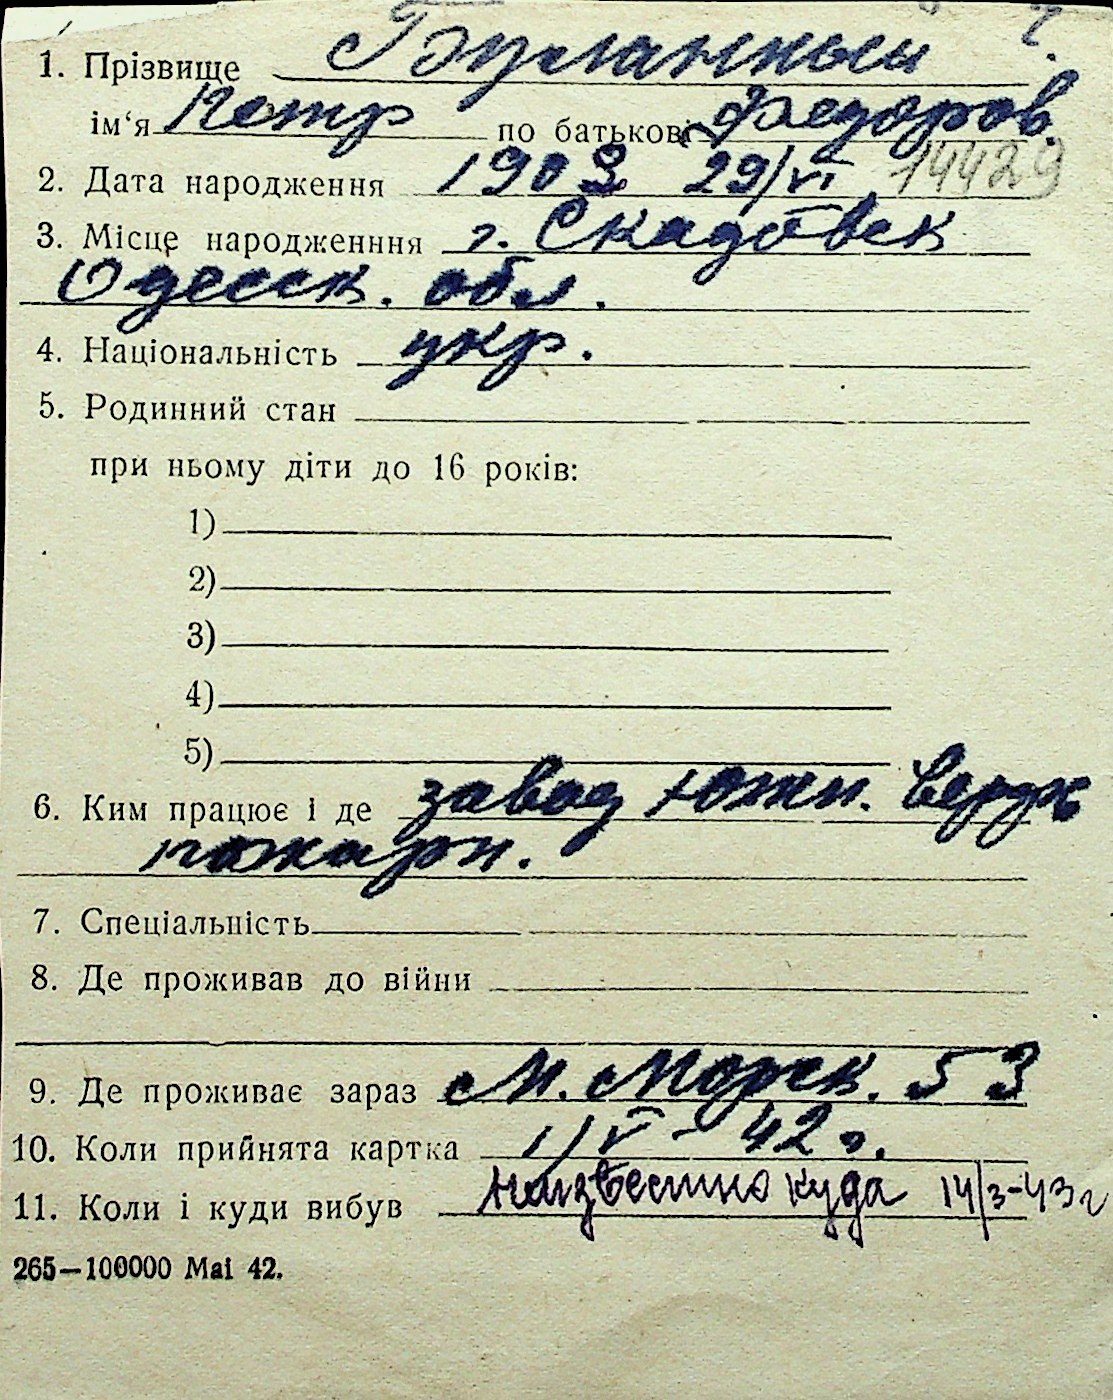 1. Прізвище Буланный
ім‘я Петр по батькові Федоров.
2. Дата народження 1903 29/VI 14429
3. Місце народженння г. Скадовск
Одесск. обл.
4. Національність укр.
5. Родинний стан
при ньому діти до 16 років:
1)
2)
3)
4)
5)
6. Ким працює і де завод Южн. Верфь
пожарн.
7. Спеціальність
8. Де проживав до війни
9. Де проживає зараз М. Морск. 53
10. Коли прийнята картка 1/V - 42 г.
11. Коли і куди вибув неизвестно куда 14/3-43г
265—100000 Mai 42.